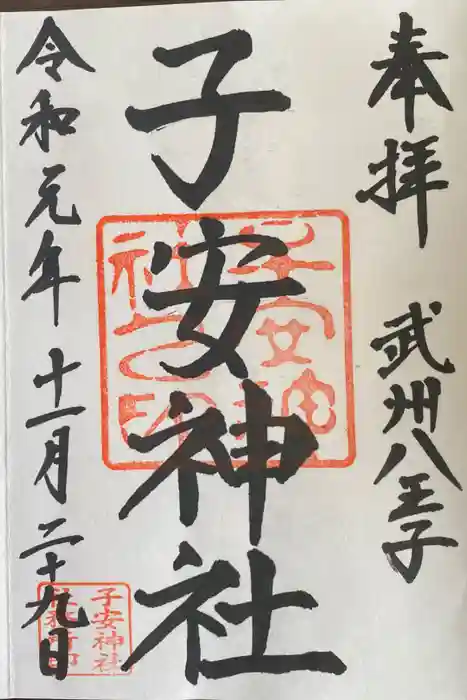 奉拝 武州八王子
子安神社
令和元年十一月二十九日
子安神社之印
子安神社社務所印